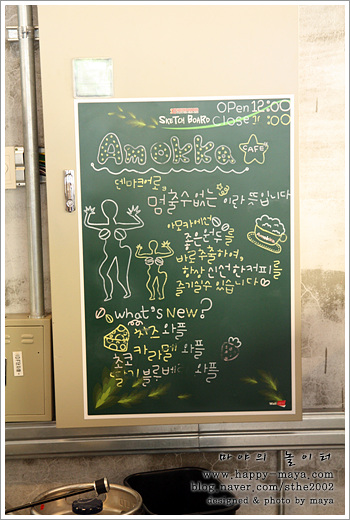 SKETCH BOARD
OPen 12:00
CLose 11:00
Amokka
CAFE
데마크어로,
멈출수없는 이라 뜻입니다
아모카에선
좋은원두를
바로 추출하여,
항상 신선한커피를
즐기실수 있습니다
what's New?
치즈 와플
초코 카라멜 와플
딸기 블루베리 와플
마야의 놀이터
www.happy-maya.com
blog.naver.com/sthe2002
designed & photo by maya